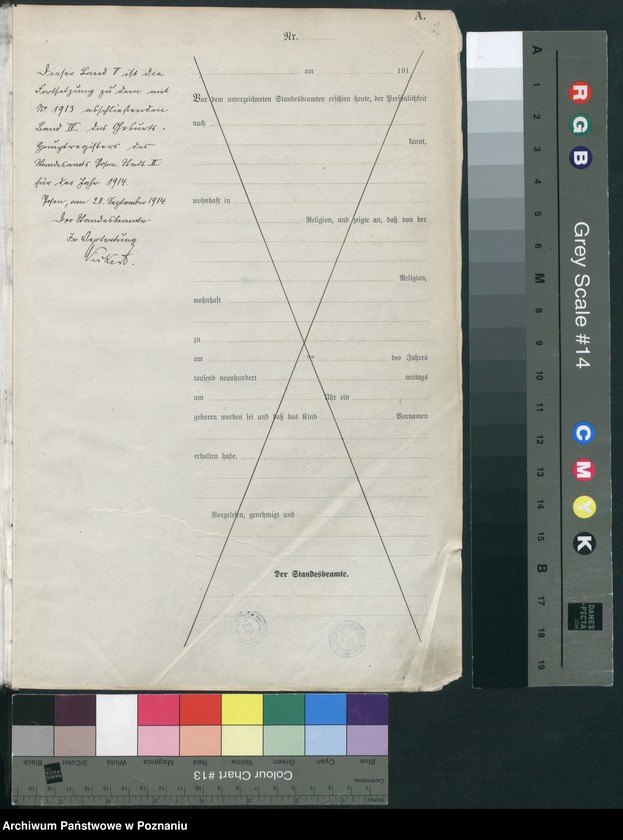 A.
Nr.
Dieser Band V ist die
Fortsetzung zu dem mit
Nr. 1913 abschließenden
Band IV des Geburts-
Hauptregisters des
Standesamts Posen Stadt II
für das Jahr 1914.
Posen, am 28. September 1914.
Der Standesbeamte
In Vertretung
am 191
Vor dem unterzeichneten Standesbeamten erschien heute, der Persönlichkeit
nach
kannt,
wohnhaft in
Religion, und zeigte an, daß von der
Religion,
wohnhaft
zu
am ten des Jahres
tausend neunhundert mittags
um Uhr ein
geboren worden sei und daß das Kind Vornamen
erhalten habe.
Vorgelesen, genehmigt und
Der Standesbeamte.
A 1 2 3 4 5 6 M 8 9 10 11 12 13 14 15 B 17 18 19
R G B
Grey Scale #14
C M Y K
DANES
-PICTA
.COM
Blue Cyan Green Yellow Red Magenta White 3/Color Black
Colour Chart #13
Centimetres
Inches
Archiwum Państwowe w Poznaniu